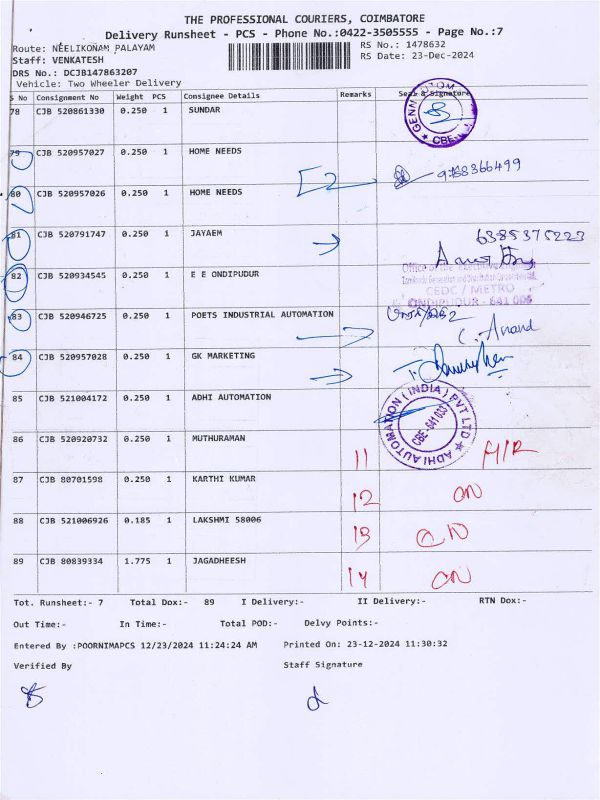 THE PROFESSIONAL COURIERS, COIMBATORE
Delivery Runsheet - PCS - Phone No.:0422-3505555 - Page No.:7
Route: NEELIKONAM PALAYAM RS No.: 1478632
Staff: VENKATESH RS Date: 23-Dec-2024
DRS No.: DCJB147863207
Vehicle: Two Wheeler Delivery
S No Consignment No Weight PCS Consignee Details Remarks Seal & Signature
78 CJB 520861330 0.250 1 SUNDAR
79 CJB 520957027 0.250 1 HOME NEEDS
80 CJB 520957026 0.250 1 HOME NEEDS 2 9788366499
81 CJB 520791747 0.250 1 JAYAEM 6385375223
82 CJB 520934545 0.250 1 E E ONDIPUDUR
CEDC / METRO
ONDIPUDUR - 641 006
83 CJB 520946725 0.250 1 POETS INDUSTRIAL AUTOMATION C. Anand
84 CJB 520957028 0.250 1 GK MARKETING
85 CJB 521004172 0.250 1 ADHI AUTOMATION
ADHI AUTOMATION (INDIA) PVT LTD
CBE-641 033
86 CJB 520920732 0.250 1 MUTHURAMAN 11
87 CJB 80701598 0.250 1 KARTHI KUMAR 12 ON
88 CJB 521006926 0.185 1 LAKSHMI 58006 13 ON
89 CJB 80839334 1.775 1 JAGADHEESH 14 ON
Tot. Runsheet:- 7 Total Dox:- 89 I Delivery:- II Delivery:- RTN Dox:-
Out Time:- In Time:- Total POD:- Delvy Points:-
Entered By :POORNIMAPCS 12/23/2024 11:24:24 AM Printed On: 23-12-2024 11:30:32
Verified By Staff Signature